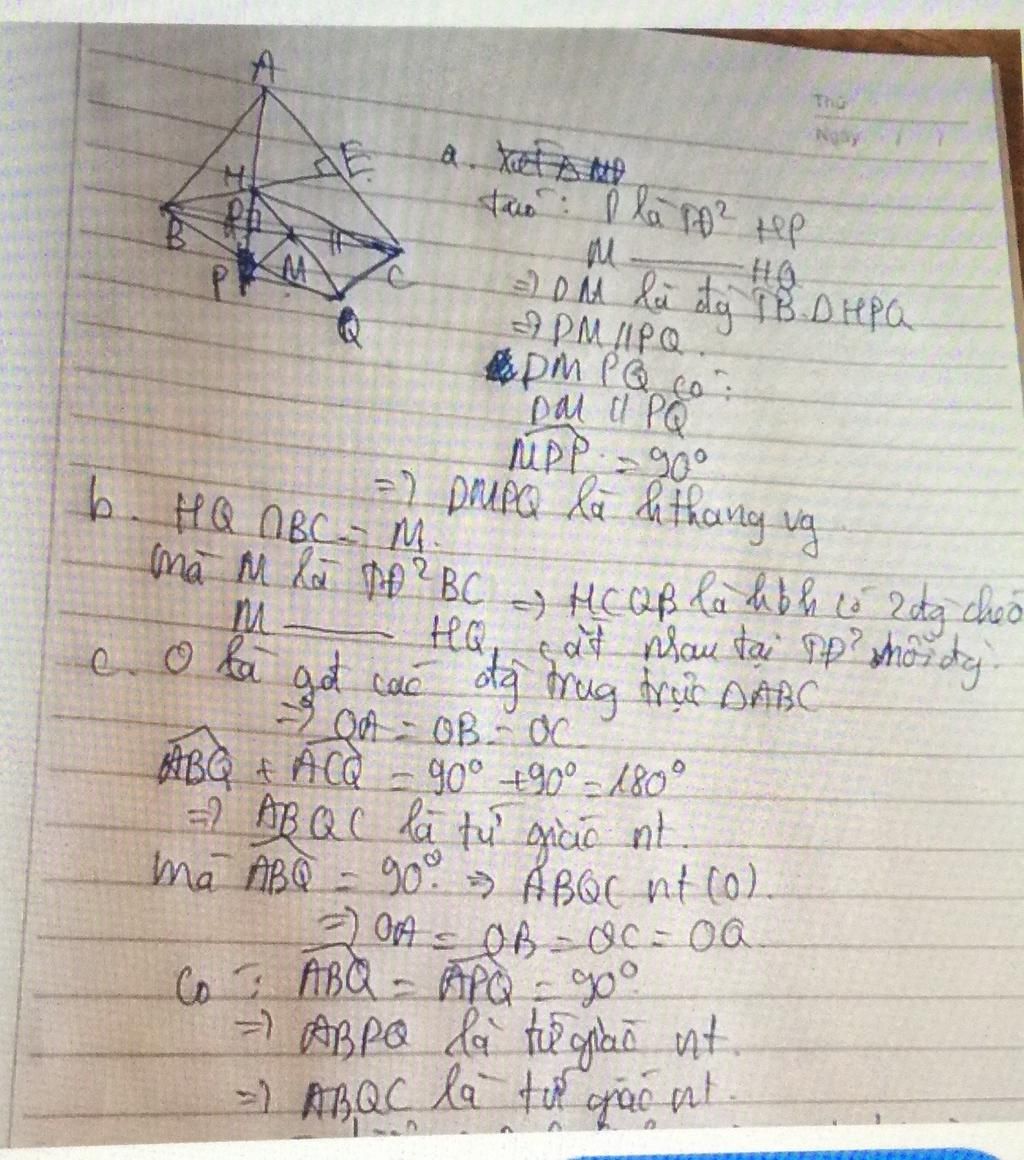 A
Thứ
Ngày / /
E
H
B
D
P
M
C
Q
a.
ta có: D là TĐ² HP
M ——— HQ
=> DM là đg TB ΔHPQ
=> DM // PQ.
DMPQ có:
DM // PQ
MDP = 90°
=> DMPQ là hthang vg
b. HQ ∩ BC = M.
mà M là TĐ² BC => HCQB là hbh có 2 đg chéo
M ——— HQ, cắt nhau tại TĐ² mỗi đg.
c. O là gđ các đg trug trực ΔABC
=> OA = OB = OC
ABQ + ACQ = 90° + 90° = 180°
=> ABQC là tứ giác nt.
mà ABQ = 90° => ABQC nt (O).
=> OA = OB = OC = OQ
Có: ABQ = APQ = 90°
=> ABPQ là tứ giác nt.
=> ABQC là tứ giác nt.